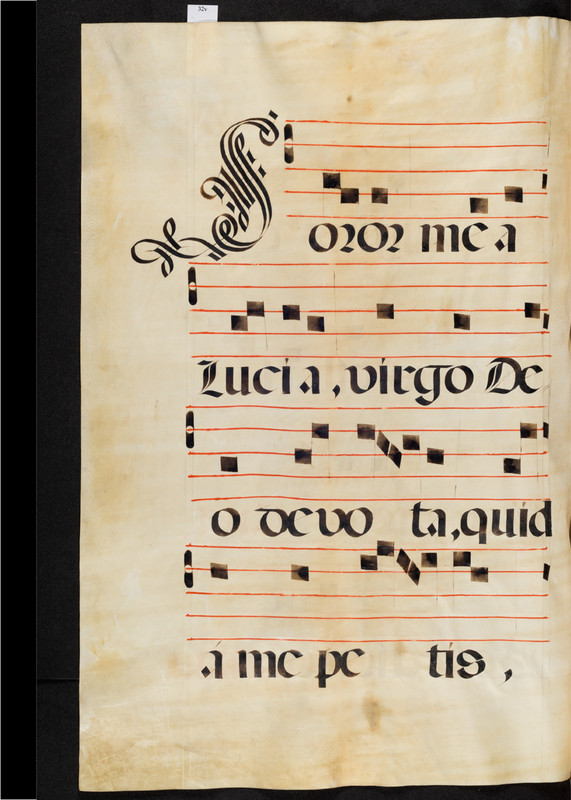 32v
Soror mea
Lucia, virgo De
o devo ta, quid
á me pe tis,